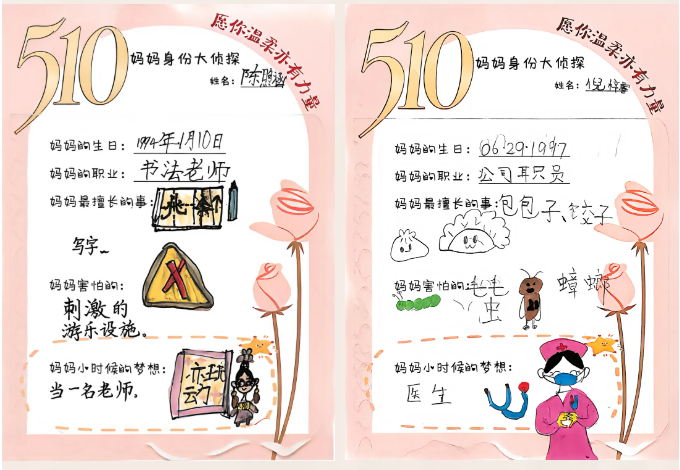 510
妈妈身份大侦探
愿你温柔亦有力量
姓名：陈
妈妈的生日：1994年1月10日
妈妈的职业：书法老师
妈妈最擅长的事：
写字
妈妈害怕的：
刺激的
游乐设施。
妈妈小时候的梦想：
当一名老师。
510
妈妈身份大侦探
愿你温柔亦有力量
姓名：倪
妈妈的生日：06.29.1997
妈妈的职业：公司职员
妈妈最擅长的事：包包子、饺子
妈妈害怕的：毛毛虫 蟑螂
妈妈小时候的梦想：
医生